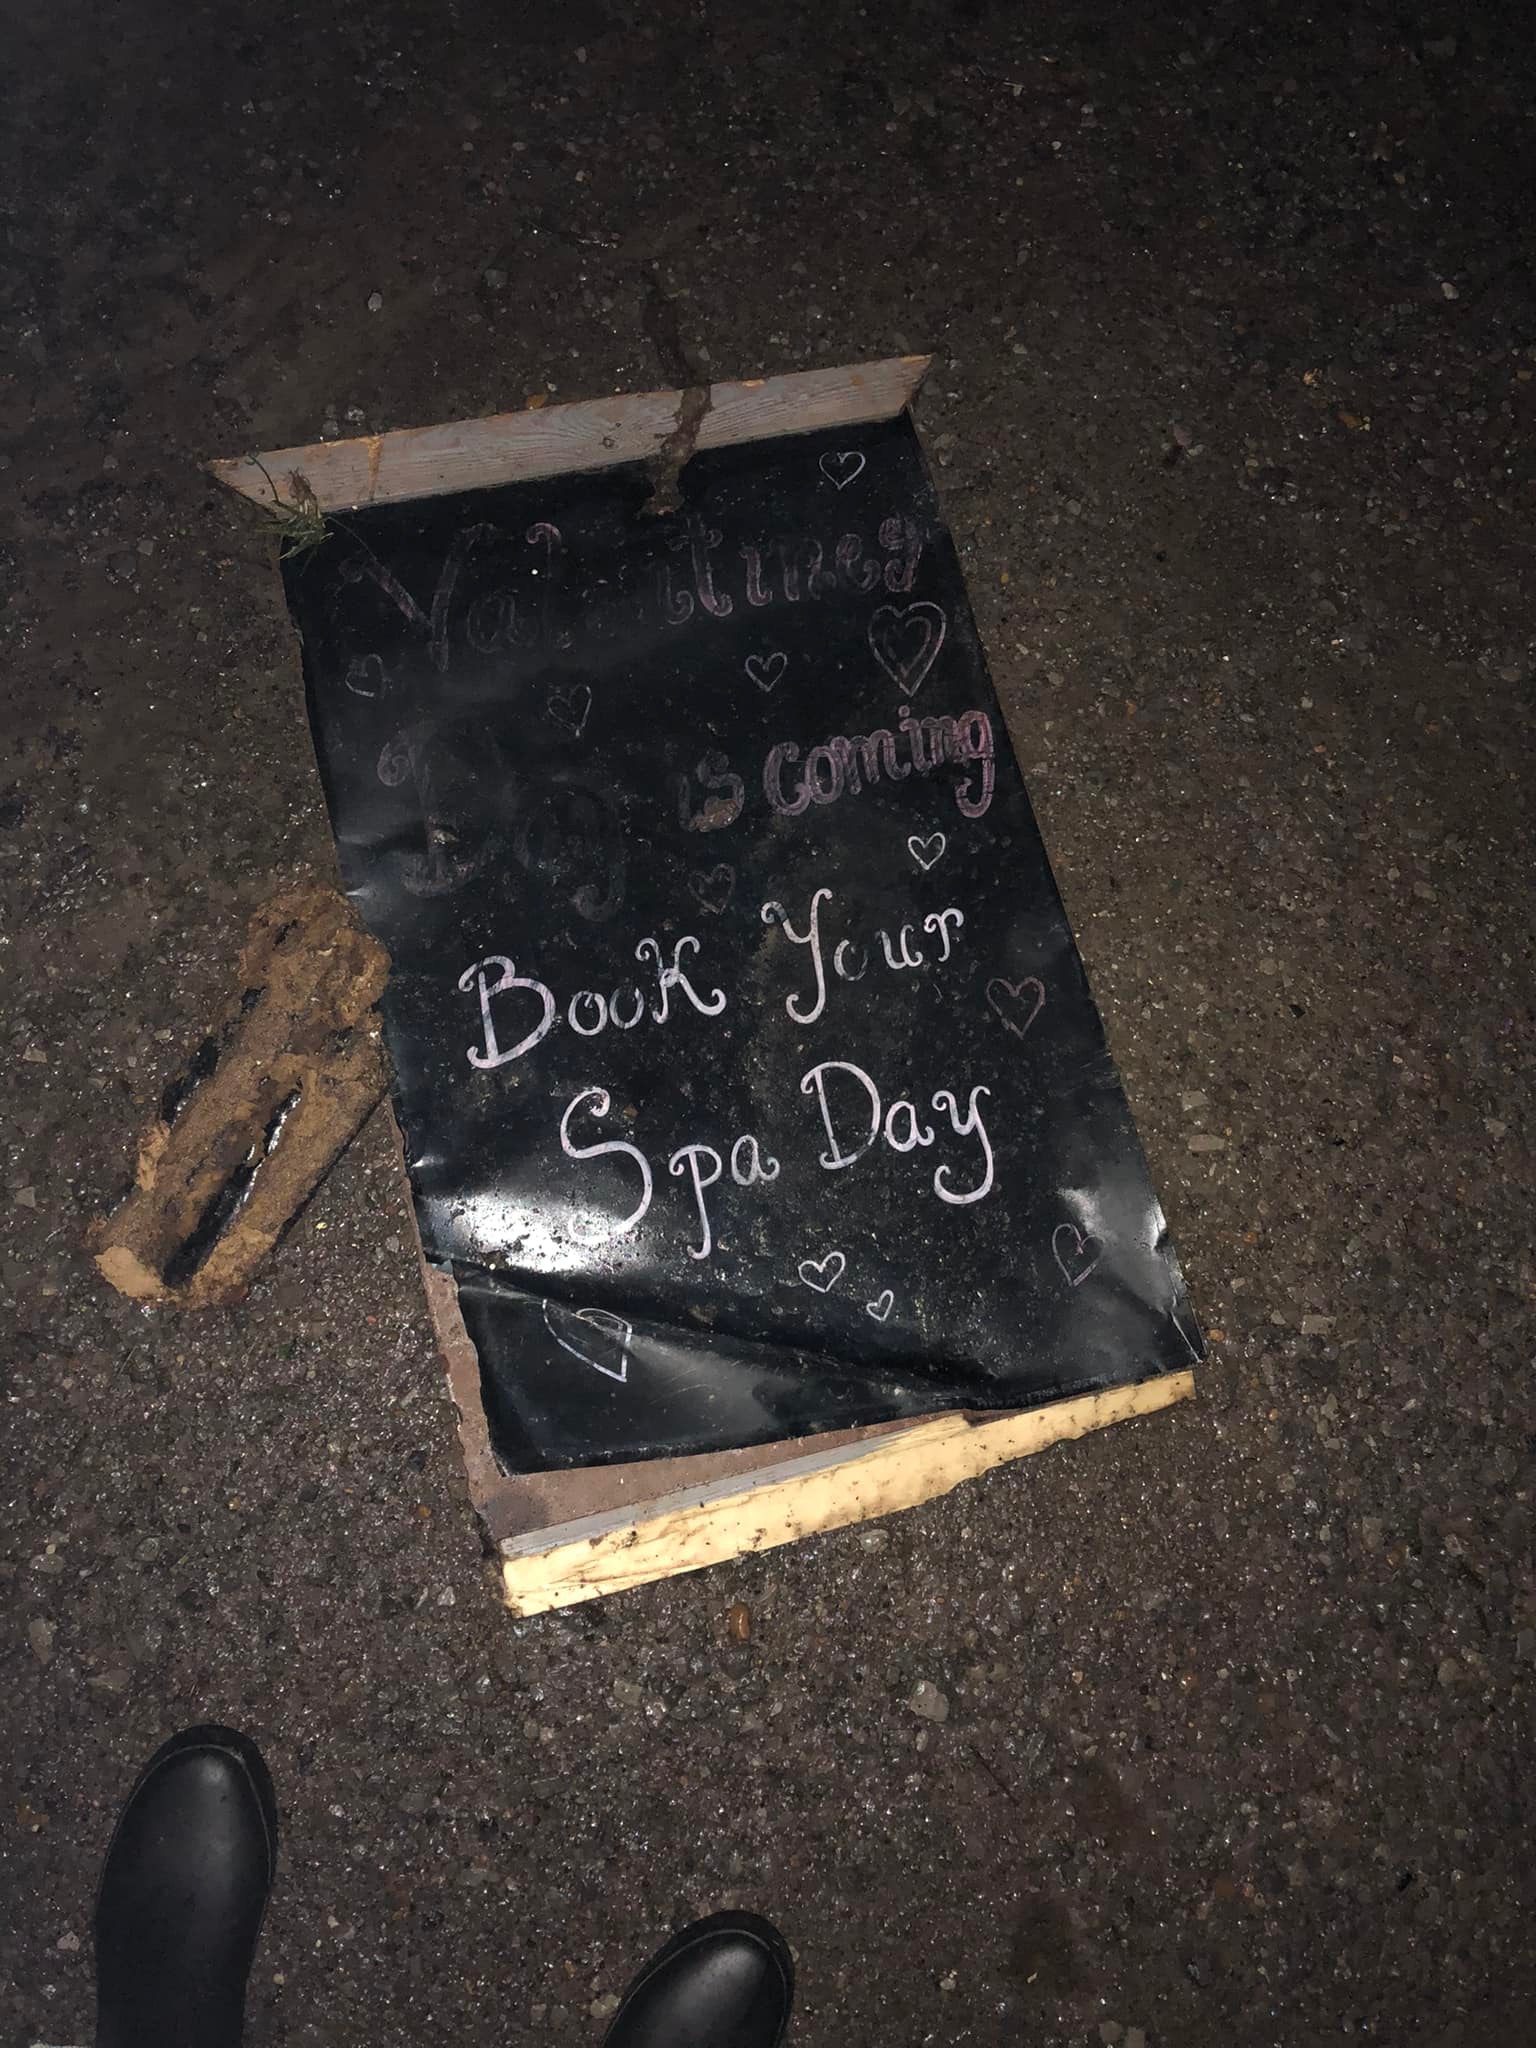 Valentines
Day is coming
Book Your
Spa Day